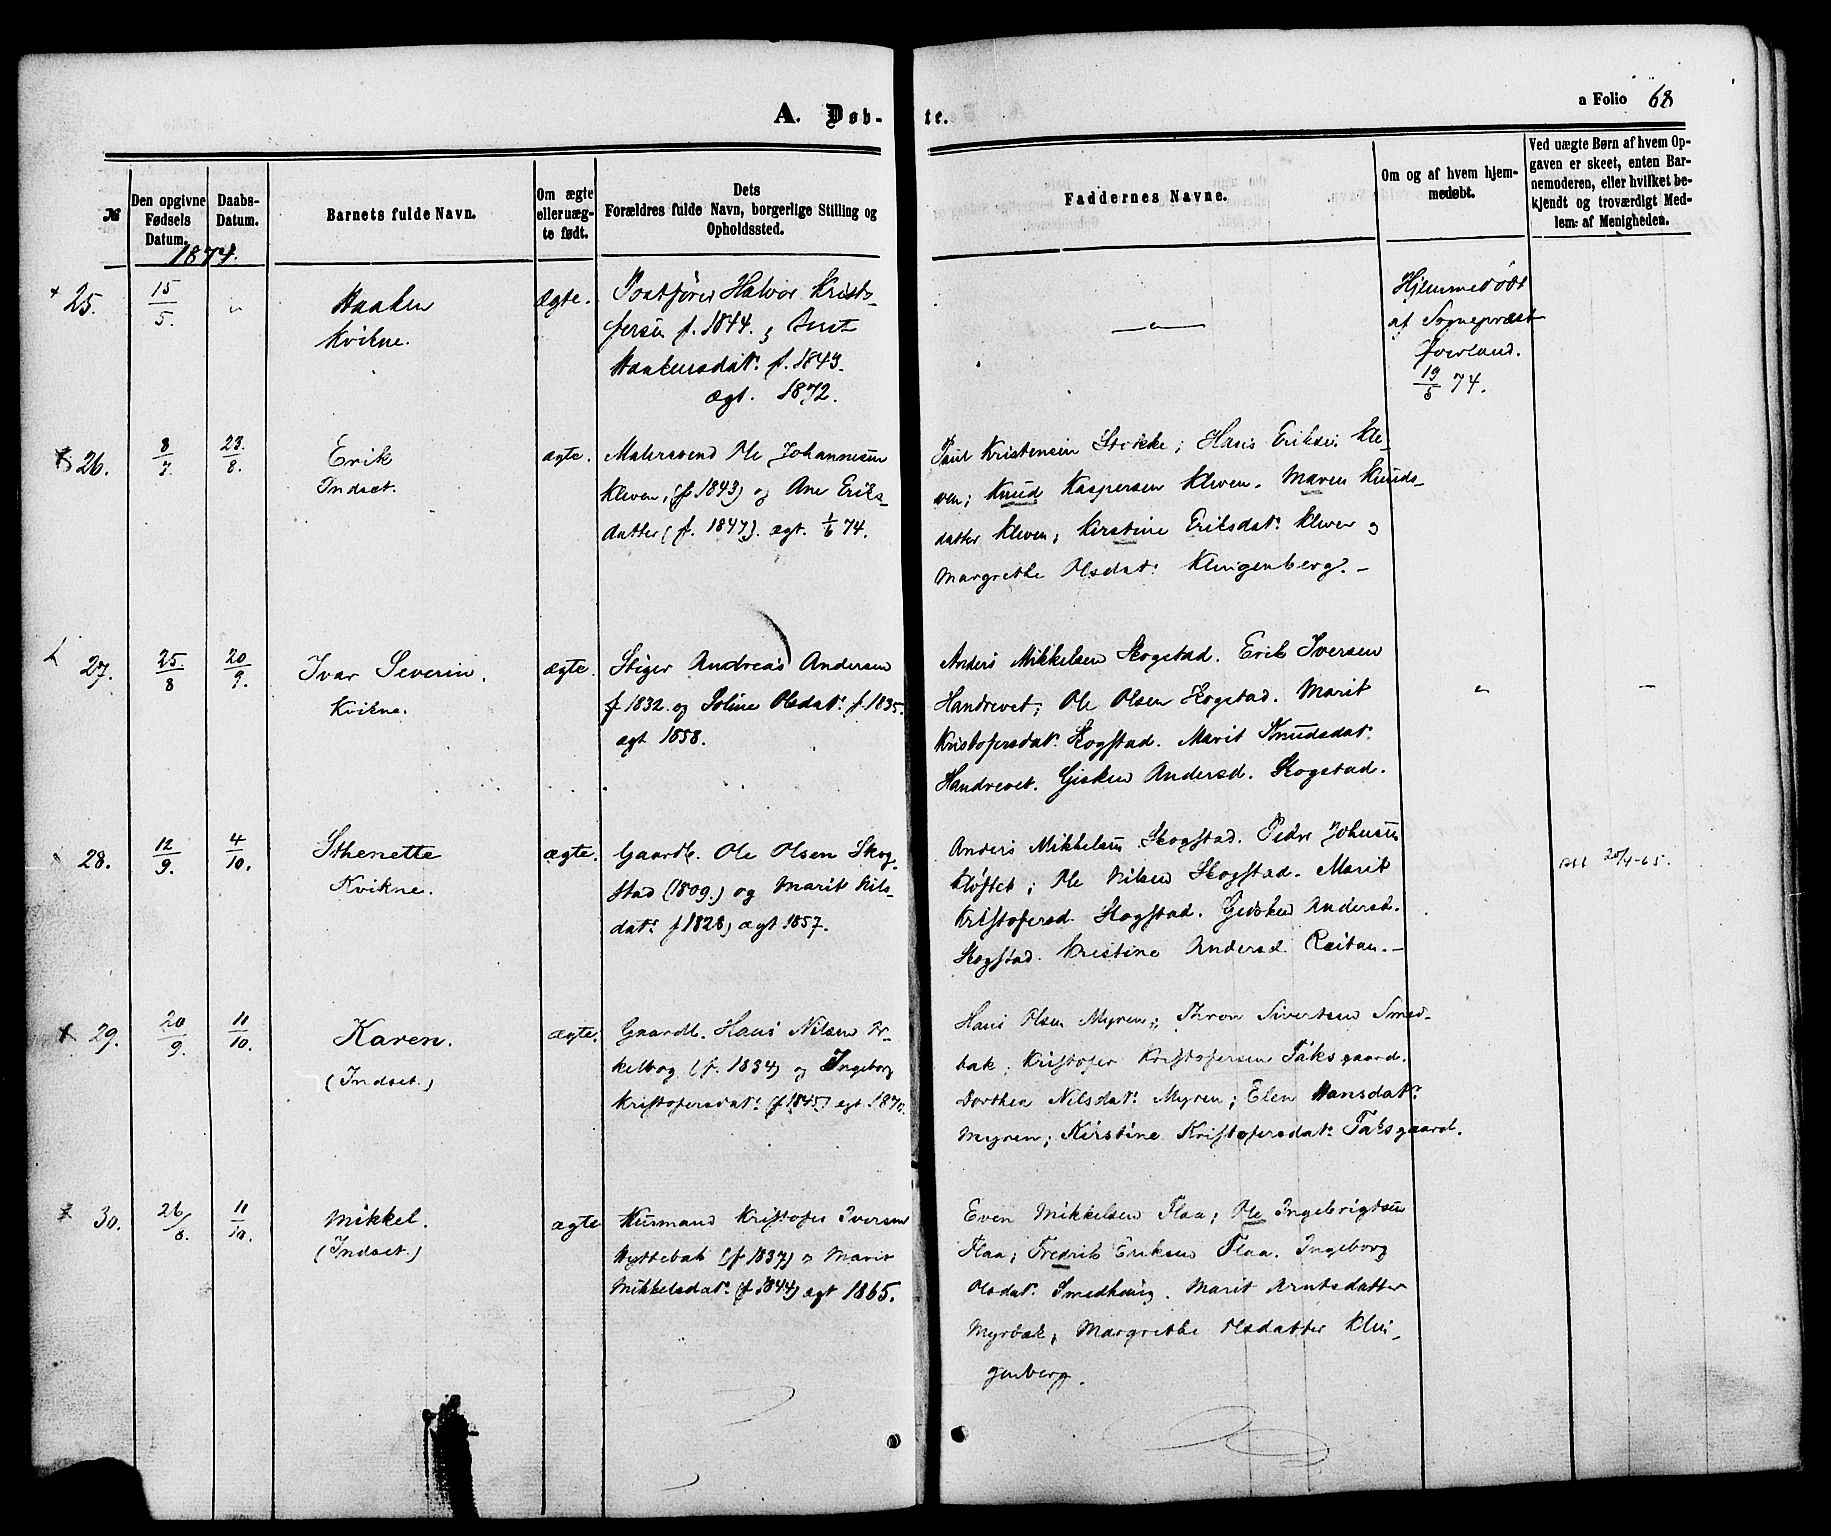 A. Døb-
te.
a Folio 68
№
Den opgivne Fødsels Datum.
Daabs-Datum.
Barnets fulde Navn.
Om ægte eller uæg-te født.
Dets Forældres fulde Navn, borgerlige Stilling og Opholdssted.
Faddernes Navne.
Om og af hvem hjem-medøbt.
Ved uægte Børn af hvem Op-gaven er skeet, enten Bar-nemoderen, eller hvilket be-kjendt og troværdigt Med-lem af Menigheden.
1874.
25.
15/5.
"
Haaken
Kvikne.
Ægte.
Postfører Halvor Krist-
fersen f. 1844. og Beret
Haakensdatr. f. 1843.
ægt. 1872.
"
Hjemmedøbt
af Sognepræst
Hverland.
19/5 74.
26.
8/7
23/8.
Erik
Indset.
ægte.
Malersvend Ole Johannesen
Kleven, (f 1843) og Ane Eriks-
datter (f. 1847). ægt. 1/6 74.
Paul Kristensen Stokke; Hans Eriksen Kle-
ven; Knud Kaspersen Kleven. Maren Knuds-
datter Kleven; Kerstine Eriksdatr. Kleven og
Margrethe Olsdatr. Klingenberg. –
27.
25/8
20/9.
Ivar Severin.
Kvikne.
ægte.
Stiger Andreas Andersen
f 1832. og Soline Olsdatr. f. 1835.
ægt 1858.
Anders Mikkelsen Skogstad. Erik Iversen
Handrevet; Ole Olsen Skogstad. Marit
Kristofersdatr. Skogstad. Marit Knudsdatr.
Handrevet. Gisken Andersd. Skogstad.
"
–
28.
12/9.
4/10.
Sthenette
Kvikne.
ægte.
Gaardb. Ole Olsen Skog-
stad (1809.) og Marit Nils-
datr. f 1828) ægt 1857.
Anders Mikkelsen Skogstad. Peder Johnsen
Kløftet; Ole Nilsen Skogstad. Marit
Kristofersd. Skogstad. Gidsken Andersd.
Skogstad. Kristine Andersd. Reitan. –
20/4-65.
29.
20/9.
11/10.
Karen.
(Indset.)
ægte.
Gaardb. Hans Nilsen Ur-
kelbog (f. 1834) og Ingeborg
Kristofersdatr. (f 1845) ægt 1870.
Hans Olsen Myren; Thron Sivertsen Smed-
bak; Kristofer Kristofersen Taksgaard.
Dorthea Nilsdatr. Myren; Elen Hansdatr.
Myren; Kirstine Kristofersdatr. Taksgaard.
30.
26/8.
11/10.
Mikkel.
(Indset.)
ægte
Husmand Kristofer Iversen
Hyttebak (f 1837) og Marit
Mikkelsdatr. (f 1844) ægt 1865.
Even Mikkelsen Flaa; Ole Ingebrigtsen
Flaa; Fredrik Eriksen Flaa. Ingeborg
Olsdatr. Smedhaug. Marit Arntsdatter
Myrbak; Margrethe Olsdatter Klin-
genberg.